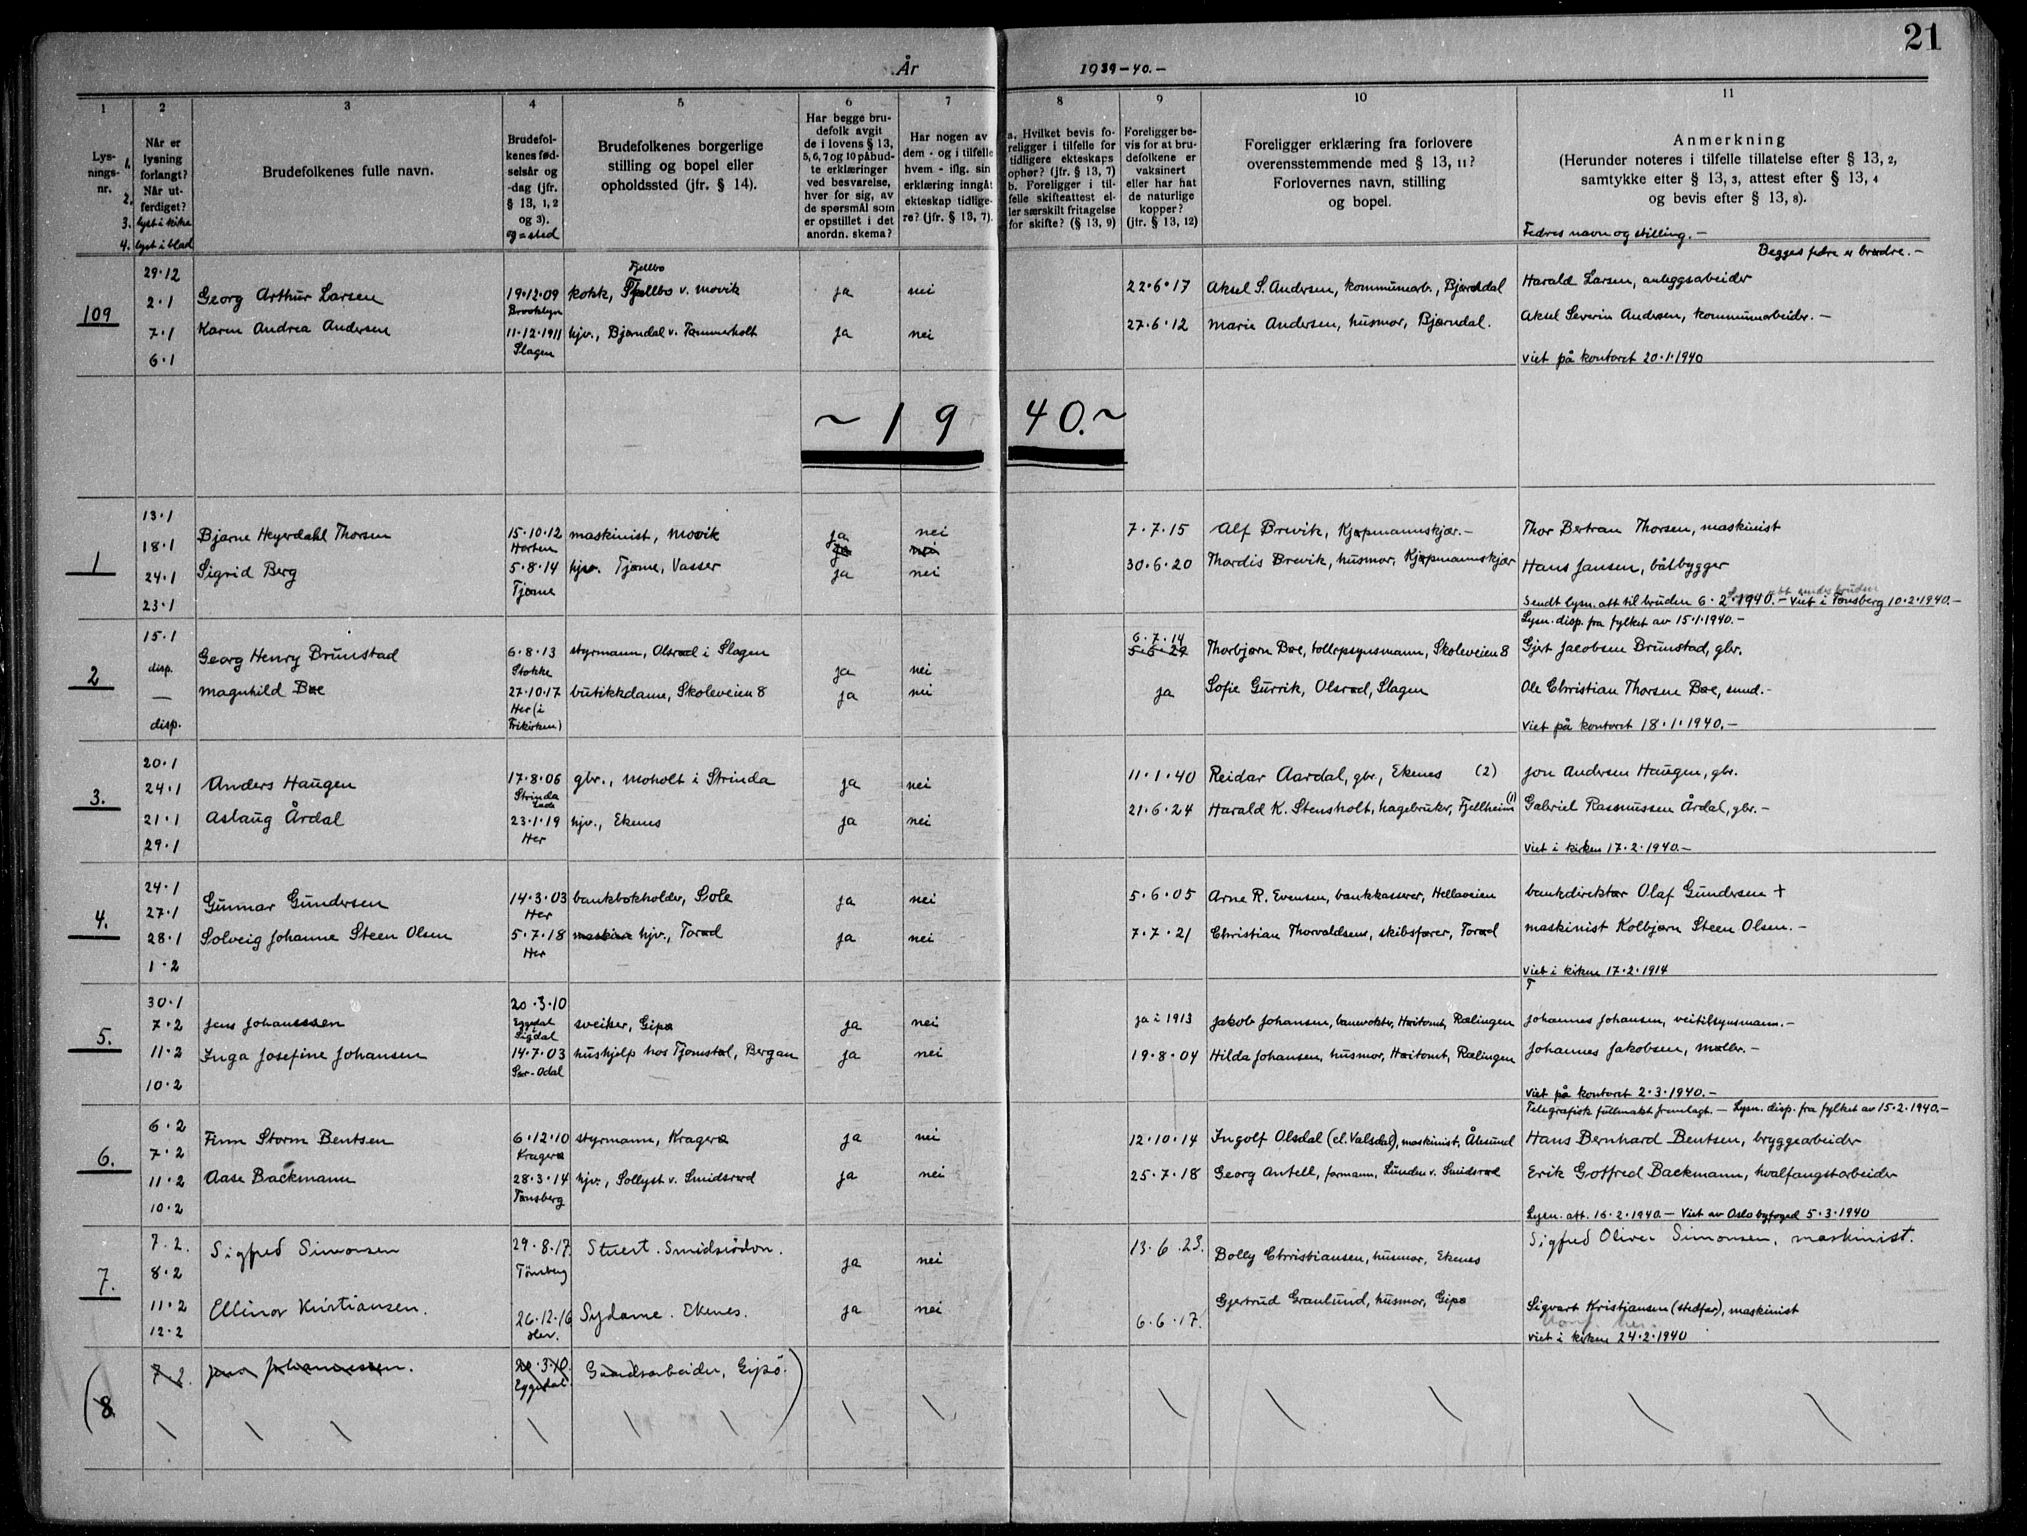 21
År 1939-40.-
1 2 3 4 5 6 7 8 9 10 11
Lys-
nings-
nr.
1.
2.
3.
4.
Når er
lysning
forlangt?
Når ut-
ferdiget?
lyst i kirke
lyst i blad
Brudefolkenes fulle navn.
Brudefol-
kenes fød-
selsår og
-dag (jfr.
§ 13, 1, 2
og 3).
og = sted
Brudefolkenes borgerlige
stilling og bopel eller
opholdssted (jfr. § 14).
Har begge bru-
defolk avgit
de i lovens § 13,
5, 6, 7 og 10 påbud-
te erklæringer
ved besvarelse,
hver for sig, av
de spørsmål som
er opstillet i det
anordn. skema?
Har nogen av
dem - og i tilfelle
hvem - iflg. sin
erklæring inngåt
ekteskap tidlige-
re? (jfr. § 13, 7).
a. Hvilket bevis fo-
religger i tilfelle for
tidligere ekteskaps
ophør? (jfr. § 13, 7)
b. Foreligger i til-
felle skifteattest el-
ler særskilt fritagelse
for skifte? (§ 13, 9)
Foreligger be-
vis for at bru-
defolkene er
vaksinert
eller har hat
de naturlige
kopper?
(jfr. § 13, 12)
Foreligger erklæring fra forlovere
overensstemmende med § 13, 11?
Forlovernes navn, stilling
og bopel.
Anmerkning
(Herunder noteres i tilfelle tillatelse efter § 13, 2,
samtykke efter § 13, 3, attest efter § 13, 4
og bevis efter § 13, 8).
Fedres navn og stilling.-
Begges fedre er brødre.-
109
29.12
2.1
7.1
6.1
Georg Arthur Larsen
19.12.09
Brooklyn
Fjellbo
kokk, Fjellbo v. Movik
ja
nei
22.6.17
Aksel S. Andersen, kommunearb., Bjørndal
Harald Larsen, anleggsarbeider
Karen Andrea Andersen
11.12.1911
Slagen
hjv., Bjørndal v. Tømmerholt
ja
nei
27.6.12
Marie Andersen, husmor, Bjørndal.
Aksel Severin Andersen, kommunearbeider.-
Viet på kontoret 20.1.1940
~ 1 9 40. ~
1
13.1
18.1
24.1
23.1
Bjarne Heyerdahl Thorsen
15.10.12
Horten
maskinist, Movik
ja
nei
7.7.15
Alf Brevik, Kjøpmannskjær.-
Thor Bertran Thorsen, maskinist
Sigrid Berg
5.8.14
Tjøme
hjv. Tjøme, Vasser
ja
nei
30.6.20
Thordis Brevik, husmor, Kjøpmannskjær
Hans Jansen, båtbygger
Sendt lysn. att til bruden 6.2.1940.- Viet i Tønsberg 10.2.1940.-
2
15.1
disp.
—
disp.
Lysn. disp. fra fylket av 15.1.1940.-
Georg Henry Brunstad
6.8.13
Stokke
styrmann, Olsrød i Slagen
ja
nei
6.7.14
5.6.27
Thorbjørn Bøe, tollopsynsmann, Skoleveien 8
Gjert Jacobsen Brunstad, gbr.
Magnhild Bøe
27.10.17
Her (i
Frikirken)
butikkdame, Skoleveien 8
ja
nei
ja
Sofie Gurrik, Olsrød, Slagen
Ole Christian Thorsen Bøe, smed.-
Viet på kontoret 18.1.1940.-
3.
20.1
24.1
21.1
29.1
Anders Haugen
17.8.06
Strinda
Lade
gbr., Moholt i Strinda
ja
nei
11.1.40
Reidar Aardal, gbr., Ekenes (2)
Jon Andersen Haugen, gbr.
Aslaug Årdal
23.1.19
Her
hjv., Ekenes
ja
nei
21.6.24
Harald K. Stensholt, hagebruker, Fjellheim (1)
Gabriel Rasmussen Årdal, gbr.-
Viet i kirken 17.2.1940.-
4.
24.1
27.1
28.1
1.2
Gunnar Gundersen
14.3.03
Her
bankbokholder, Sole
ja
nei
5.6.05
Arne R. Evensen, bankkasserer, Hellaveien
bankdirektør Olaf Gundersen +
Solveig Johanne Steen Olsen
5.7.18
Her
hjv., Torød
ja
nei
7.7.21
Christian Thorvaldsens, skibsfører, Torød
maskinist Kolbjørn Steen Olsen.-
Viet i kirken 17.2.1914
5.
30.1
7.2
11.2
10.2
Jens Johanssen
20.3.10
Eggedal
i
Sigdal
sveiser, Gipø
ja
nei
ja i 1913
Jakob Johansen, banevokter, Høitomt, Rælingen
Johannes Johansen, veitilsynsmann.-
Inga Josefine Johansen
14.7.03
Sør-Odal
hushjelp hos Tjomstøl, Bergan
ja
nei
19.8.04
Hilda Johansen, husmor, Høitomt, Rælingen
Johannes Jakobsen, møller.-
Viet på kontoret 2.3.1940.-
6.
6.2
7.2
11.2
10.2
Telegrafisk fullmakt fremlagt.- Lysn. disp. fra fylket av 15.2.1940.-
Finn Storm Bentsen
6.12.10
Kragerø
styrmann, Kragerø
ja
nei
12.10.14
Ingolf Olsdal (el. Valsdal), maskinist, Ålesund
Hans Bernhard Bentsen, bryggearbeider
Aase Backmann
28.3.14
Tønsberg
hjv., Sollyst v. Smidsrød
ja
nei
25.7.18
Georg Antell, formann, Lunden v. Smidsrød
Erik Gotfred Backmann, hvalfangstarbeider
Lysn. att. 16.2.1940.- Viet av Oslo byfoged 5.3.1940
7.
7.2.
8.2
11.2
12.2
Sigfred Simonsen
29.8.17
Tønsberg
Stuert. Smidsrødvn.
ja
nei
13.6.23.
Bolly Christiansen, husmor, Ekenes
Sigfred Oliver Simonsen, maskinist.
Ellinor Kristiansen.
26.12.16
Her.
Sydame. Ekenes.
ja
nei
6.6.17.
Gjertrud Granlund, husmor, Gipø
Sigvart Kristiansen (stedfar), maskinist
Viet i kirken 24.2.1940
(8
7.2.
Jens Johannessen.
20.3.10.
Eggedal.
Gaardsarbeider, Gipø.)